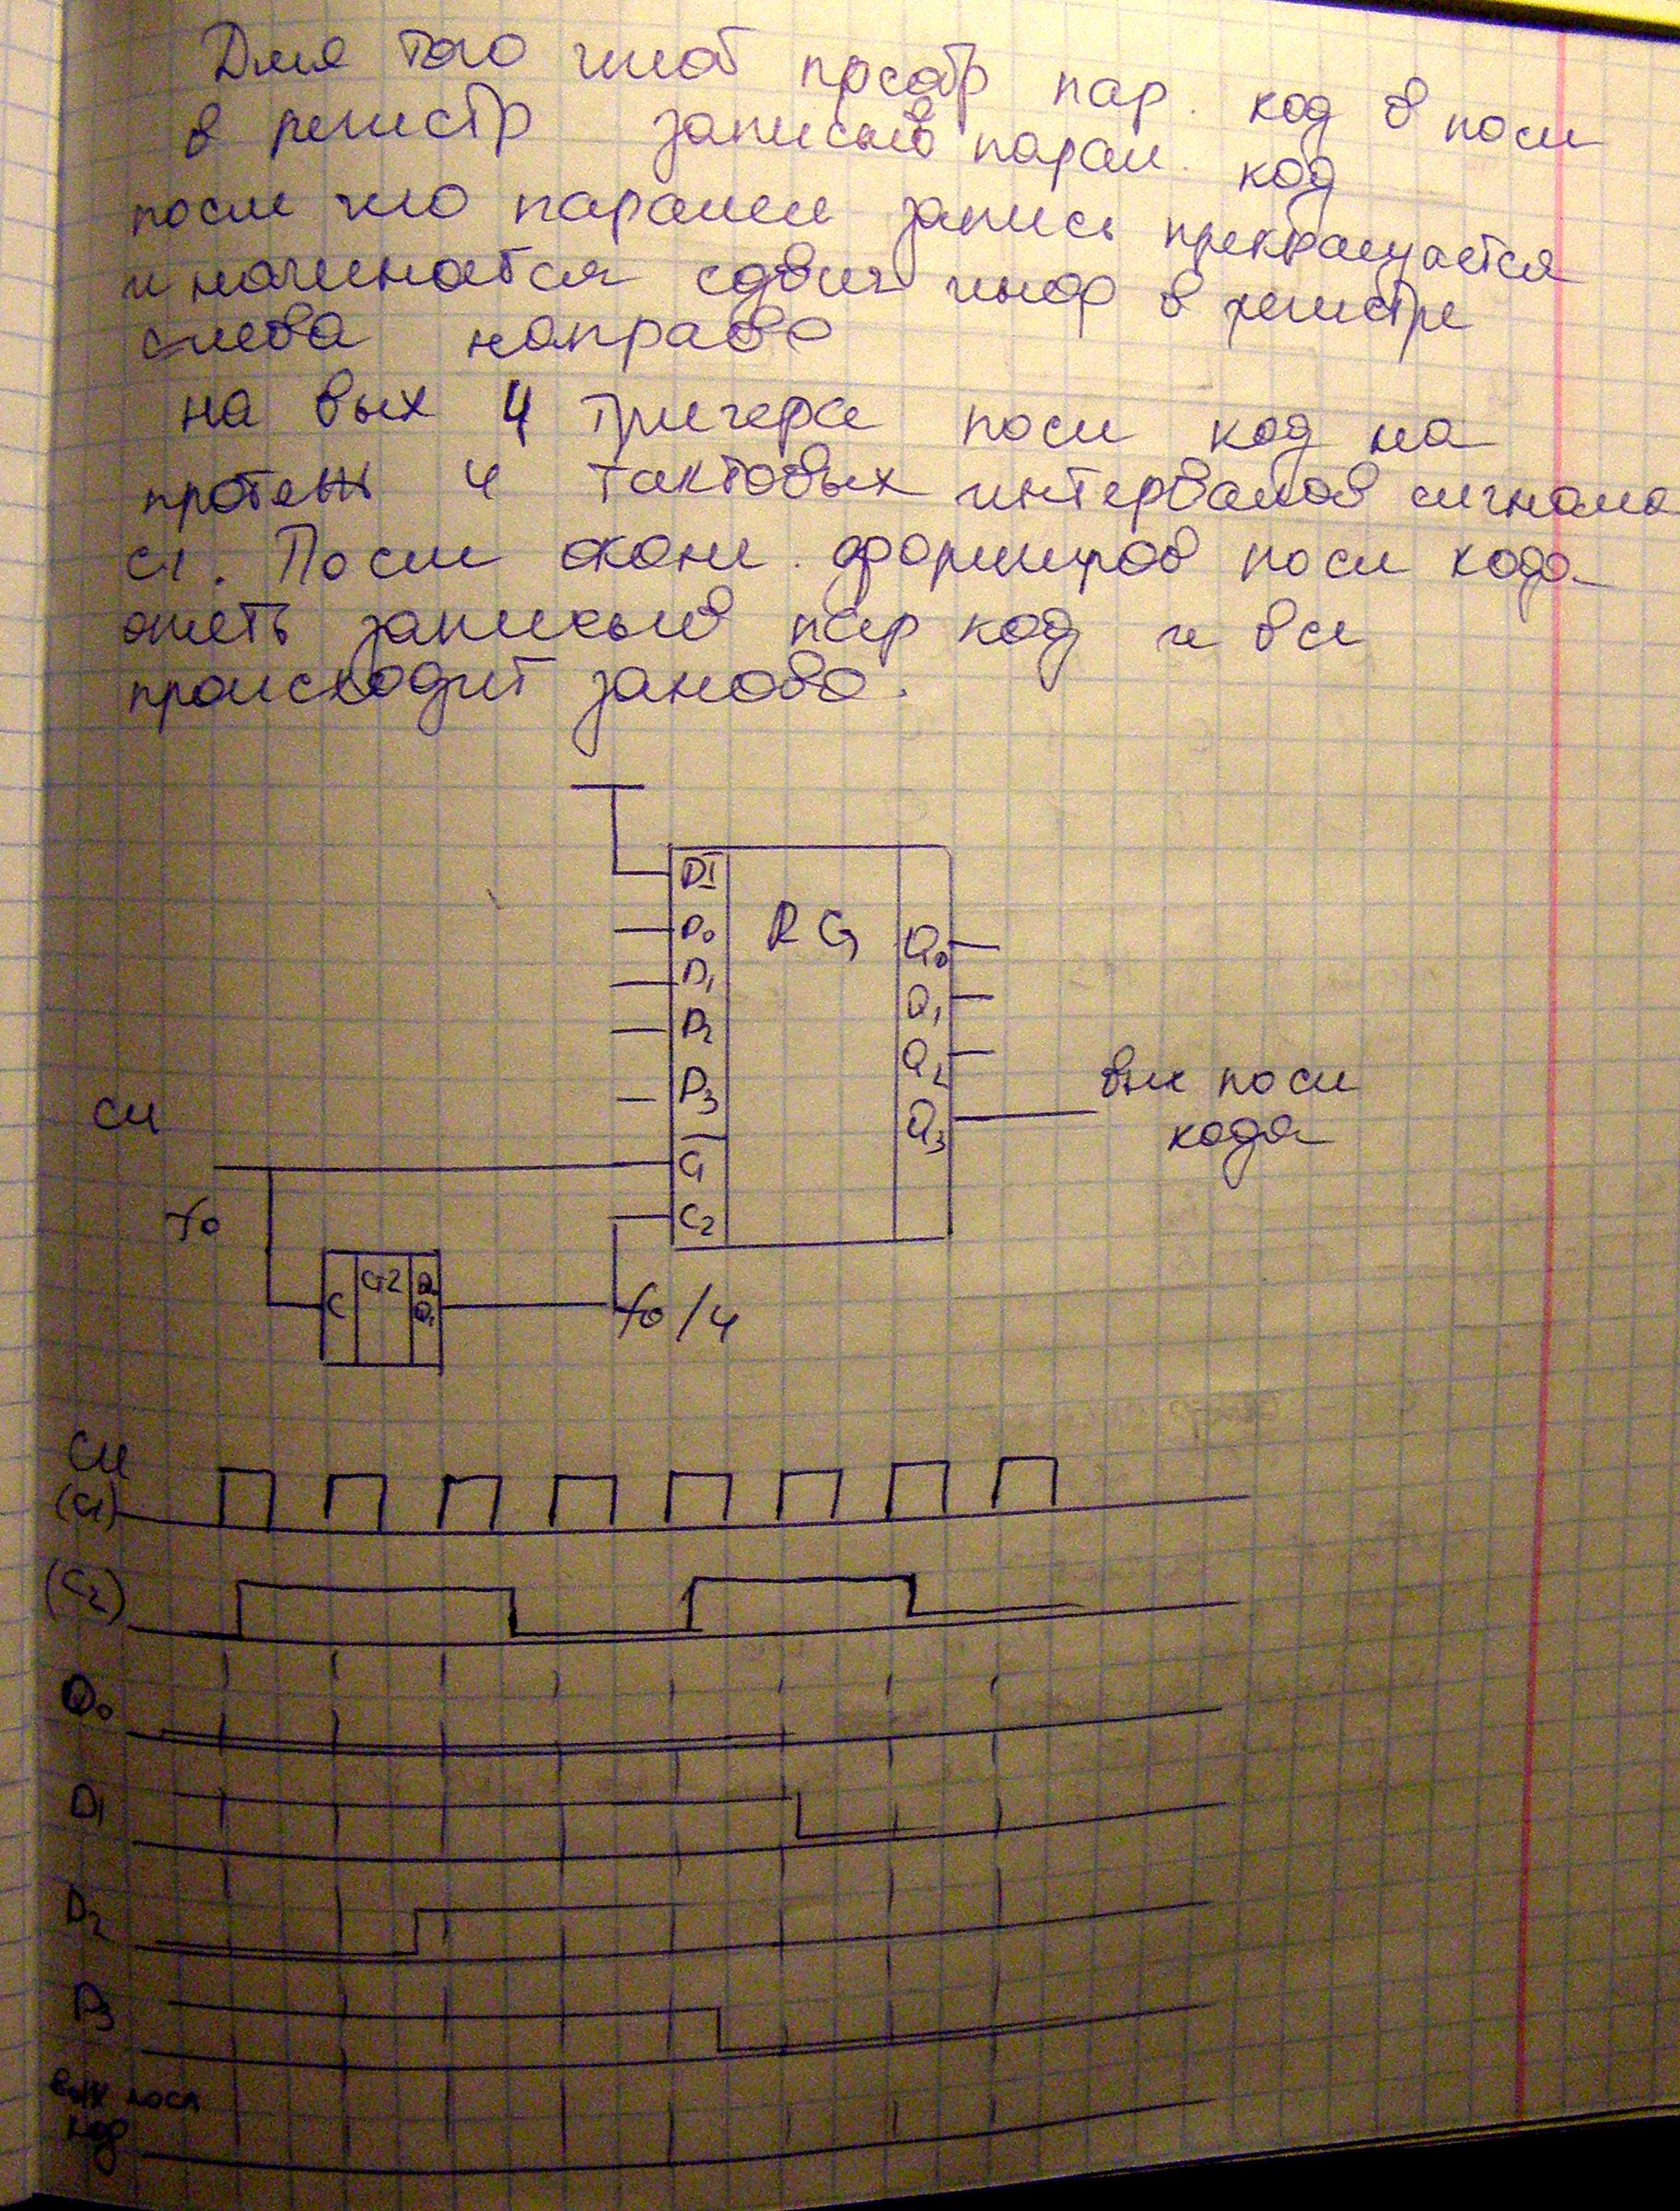 Для того чтоб прсатр пар. код в посл
в регистр записыв парал. код
после чего паралел запись прекращается
и начинается сдвиг инфор в регистре
слева направо
на вых 4 тригера посл код на
протяж 4 тактовых интервалов сигнала
C1. После оконч. формиров посл кода
опять записыв пар код и все
происходит заново.
DI
D0
RG
Q0
D1
Q1
D2
Q2
вых посл
D3
СИ
Q3
кода
C1
f0
C2
C
CT2
Q0
Q1
f0/4
СИ
(C1)
(C2)
D0
D1
D2
D3
вых посл
код